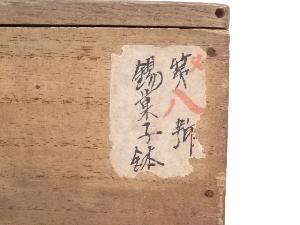 第八號
錫菓子鉢